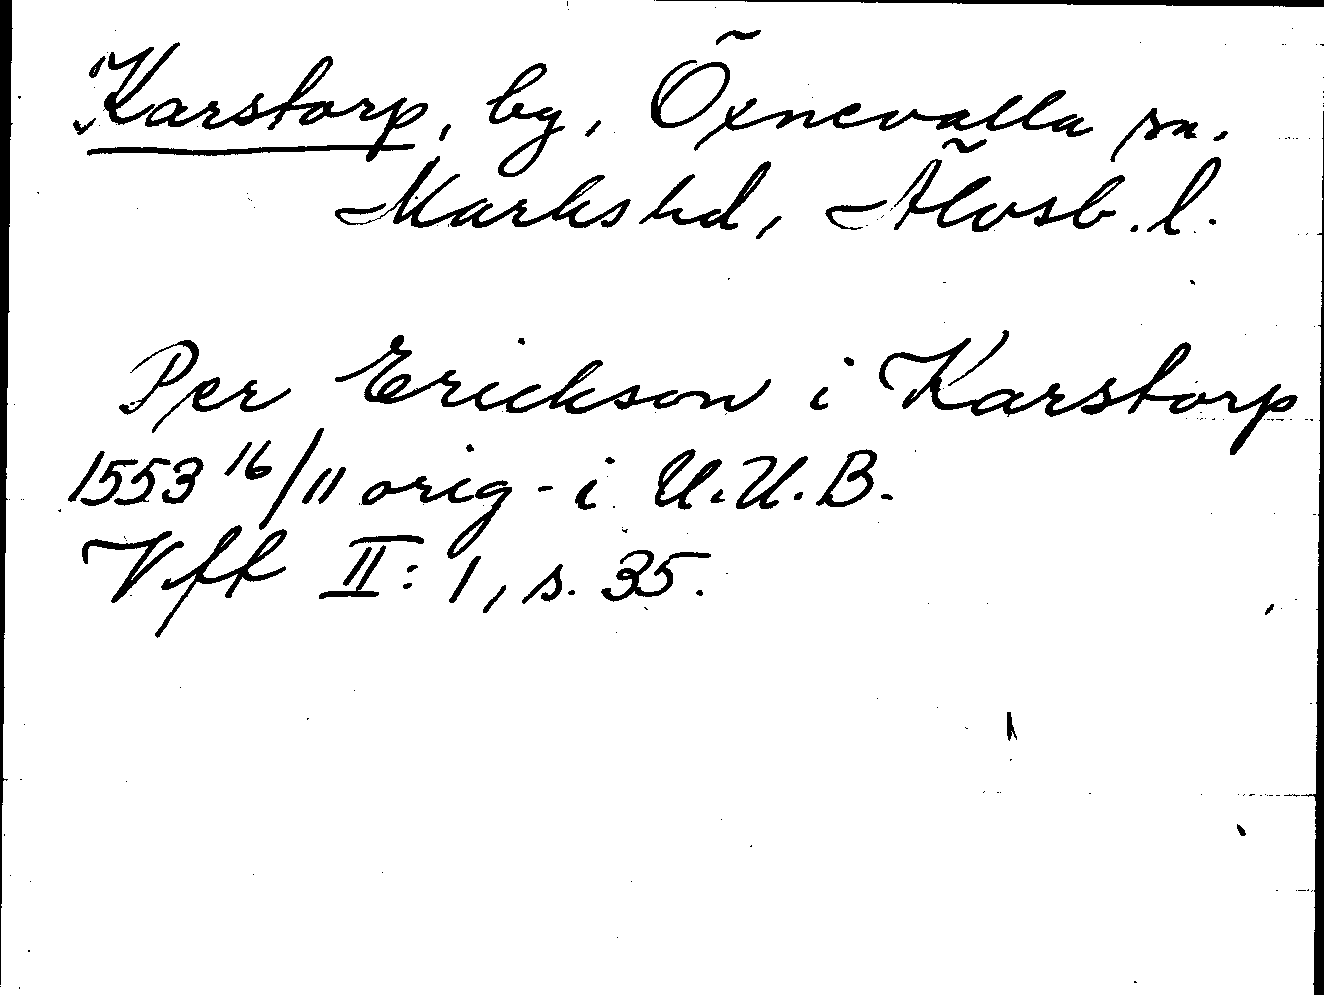 Karstorp, by, Öxnevalla sn.
Marks hd, Älvsb. l.
Per Erickson i Karstorp
1553 16/11 orig. i U.U.B.
Vff II: 1, s. 35.